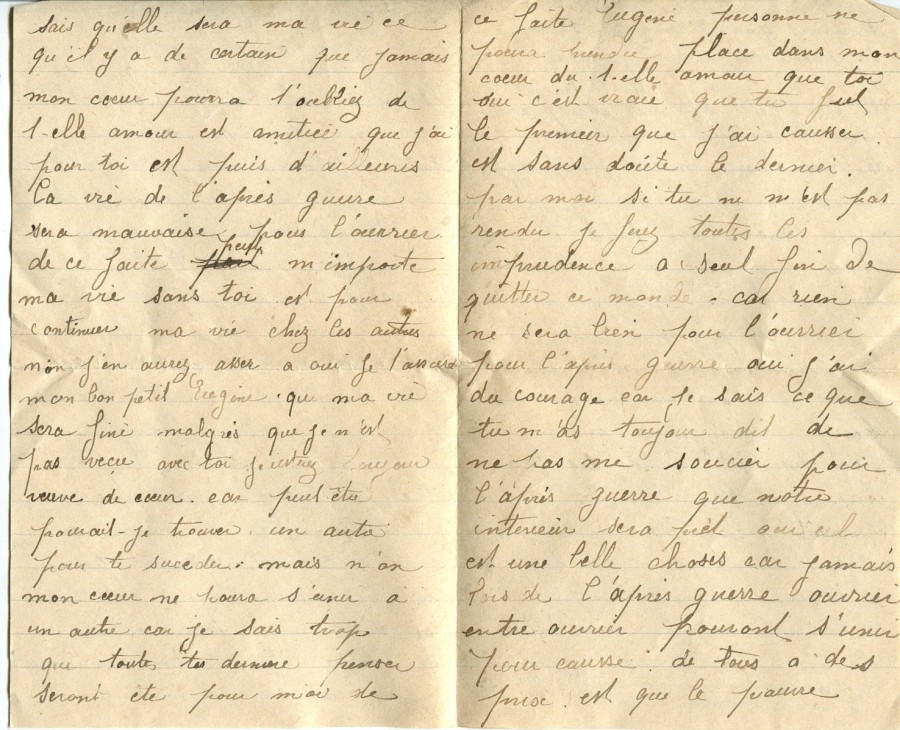 sais qu'elle sera ma vie ce
qu'il y a de certain que jamais
mon coeur pourra l'oubliez de
t-elle amour est amitiée que j'ai
pour toi est puis d'ailleurs
la vie de l'après guerre
sera mauvaise pour l'ouvrier
de ce faite peut m'importe
ma vie sans toi est pour
continuer ma vie chez les autres
non j'en aurez assez a oui je l'assure
mon bon petit Eugène que ma vie
sera finie malgrès que je n'est
pas veçue avec toi je toujour
veuve de coeur. car peut être
pourait-je trouver un autre
pour te succeder. mais n'on
mon coeur ne poura s'unir a
un autre car je sais trop
que toute tes dernière penser
seront éte pour moi de
ce faite Eugene personne ne
poura prendre place dans mon
coeur du t-elle amour que toi
oui c'est vraie que tu fut
le premier que j'ai causser
est sans doute le dernier.
par moi si tu ne m'est pas
rendu je ferez toutes les
imprudence a seul fin de
quitter ce monde. car rien
ne sera bien pour l'ouvrier
pour l'après guerre oui j'ai
du courage car je sais ce que
tu m'as toujour dit de
ne pas me soucier pour
l'après guerre que notre
interieur sera prêt oui
est une belle choses car jamais
de l'après guerre ouvrier
entre ouvrier pouront s'unir
pour causse de tous a des
prix est que le pauvre